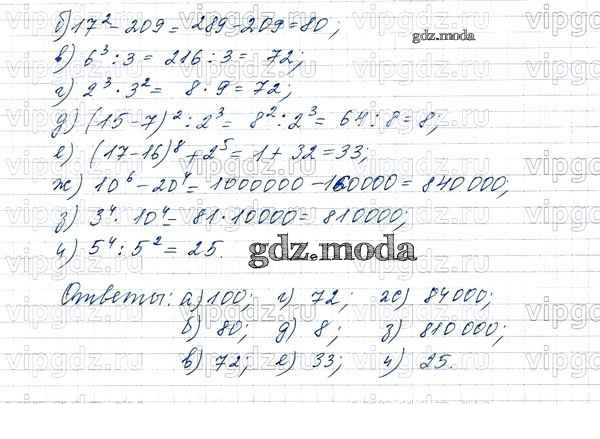 б) 17² - 209 = 289 - 209 = 80;
gdz.moda
в) 6³ : 3 = 216 : 3 = 72;
г) 2³ · 3² = 8 · 9 = 72;
д) (15-7)² : 2³ = 8² : 2³ = 64 : 8 = 8;
е) (17-16)⁸ + 2⁵ = 1 + 32 = 33;
ж) 10⁶ - 20⁴ = 1000000 - 160000 = 840000;
з) 3⁴ · 10⁴ = 81 · 10000 = 810000;
и) 5⁴ : 5² = 25.
gdz.moda
Ответы: а) 100; г) 72; ж) 84000;
б) 80; д) 8; з) 810000;
в) 72; е) 33; и) 25.